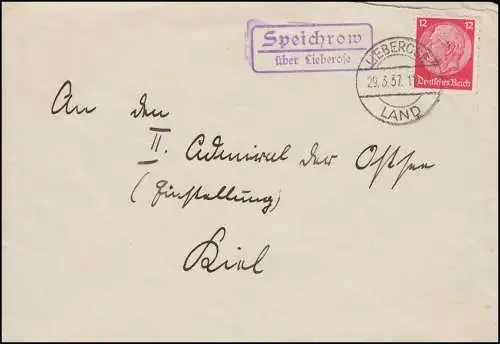 Speichrow
über Lieberose
LIEBEROSE
29.3.37.
LAND
12 12
Deutsches Reich
An den
II. Admiral der Ostsee
(Einstellung)
Kiel